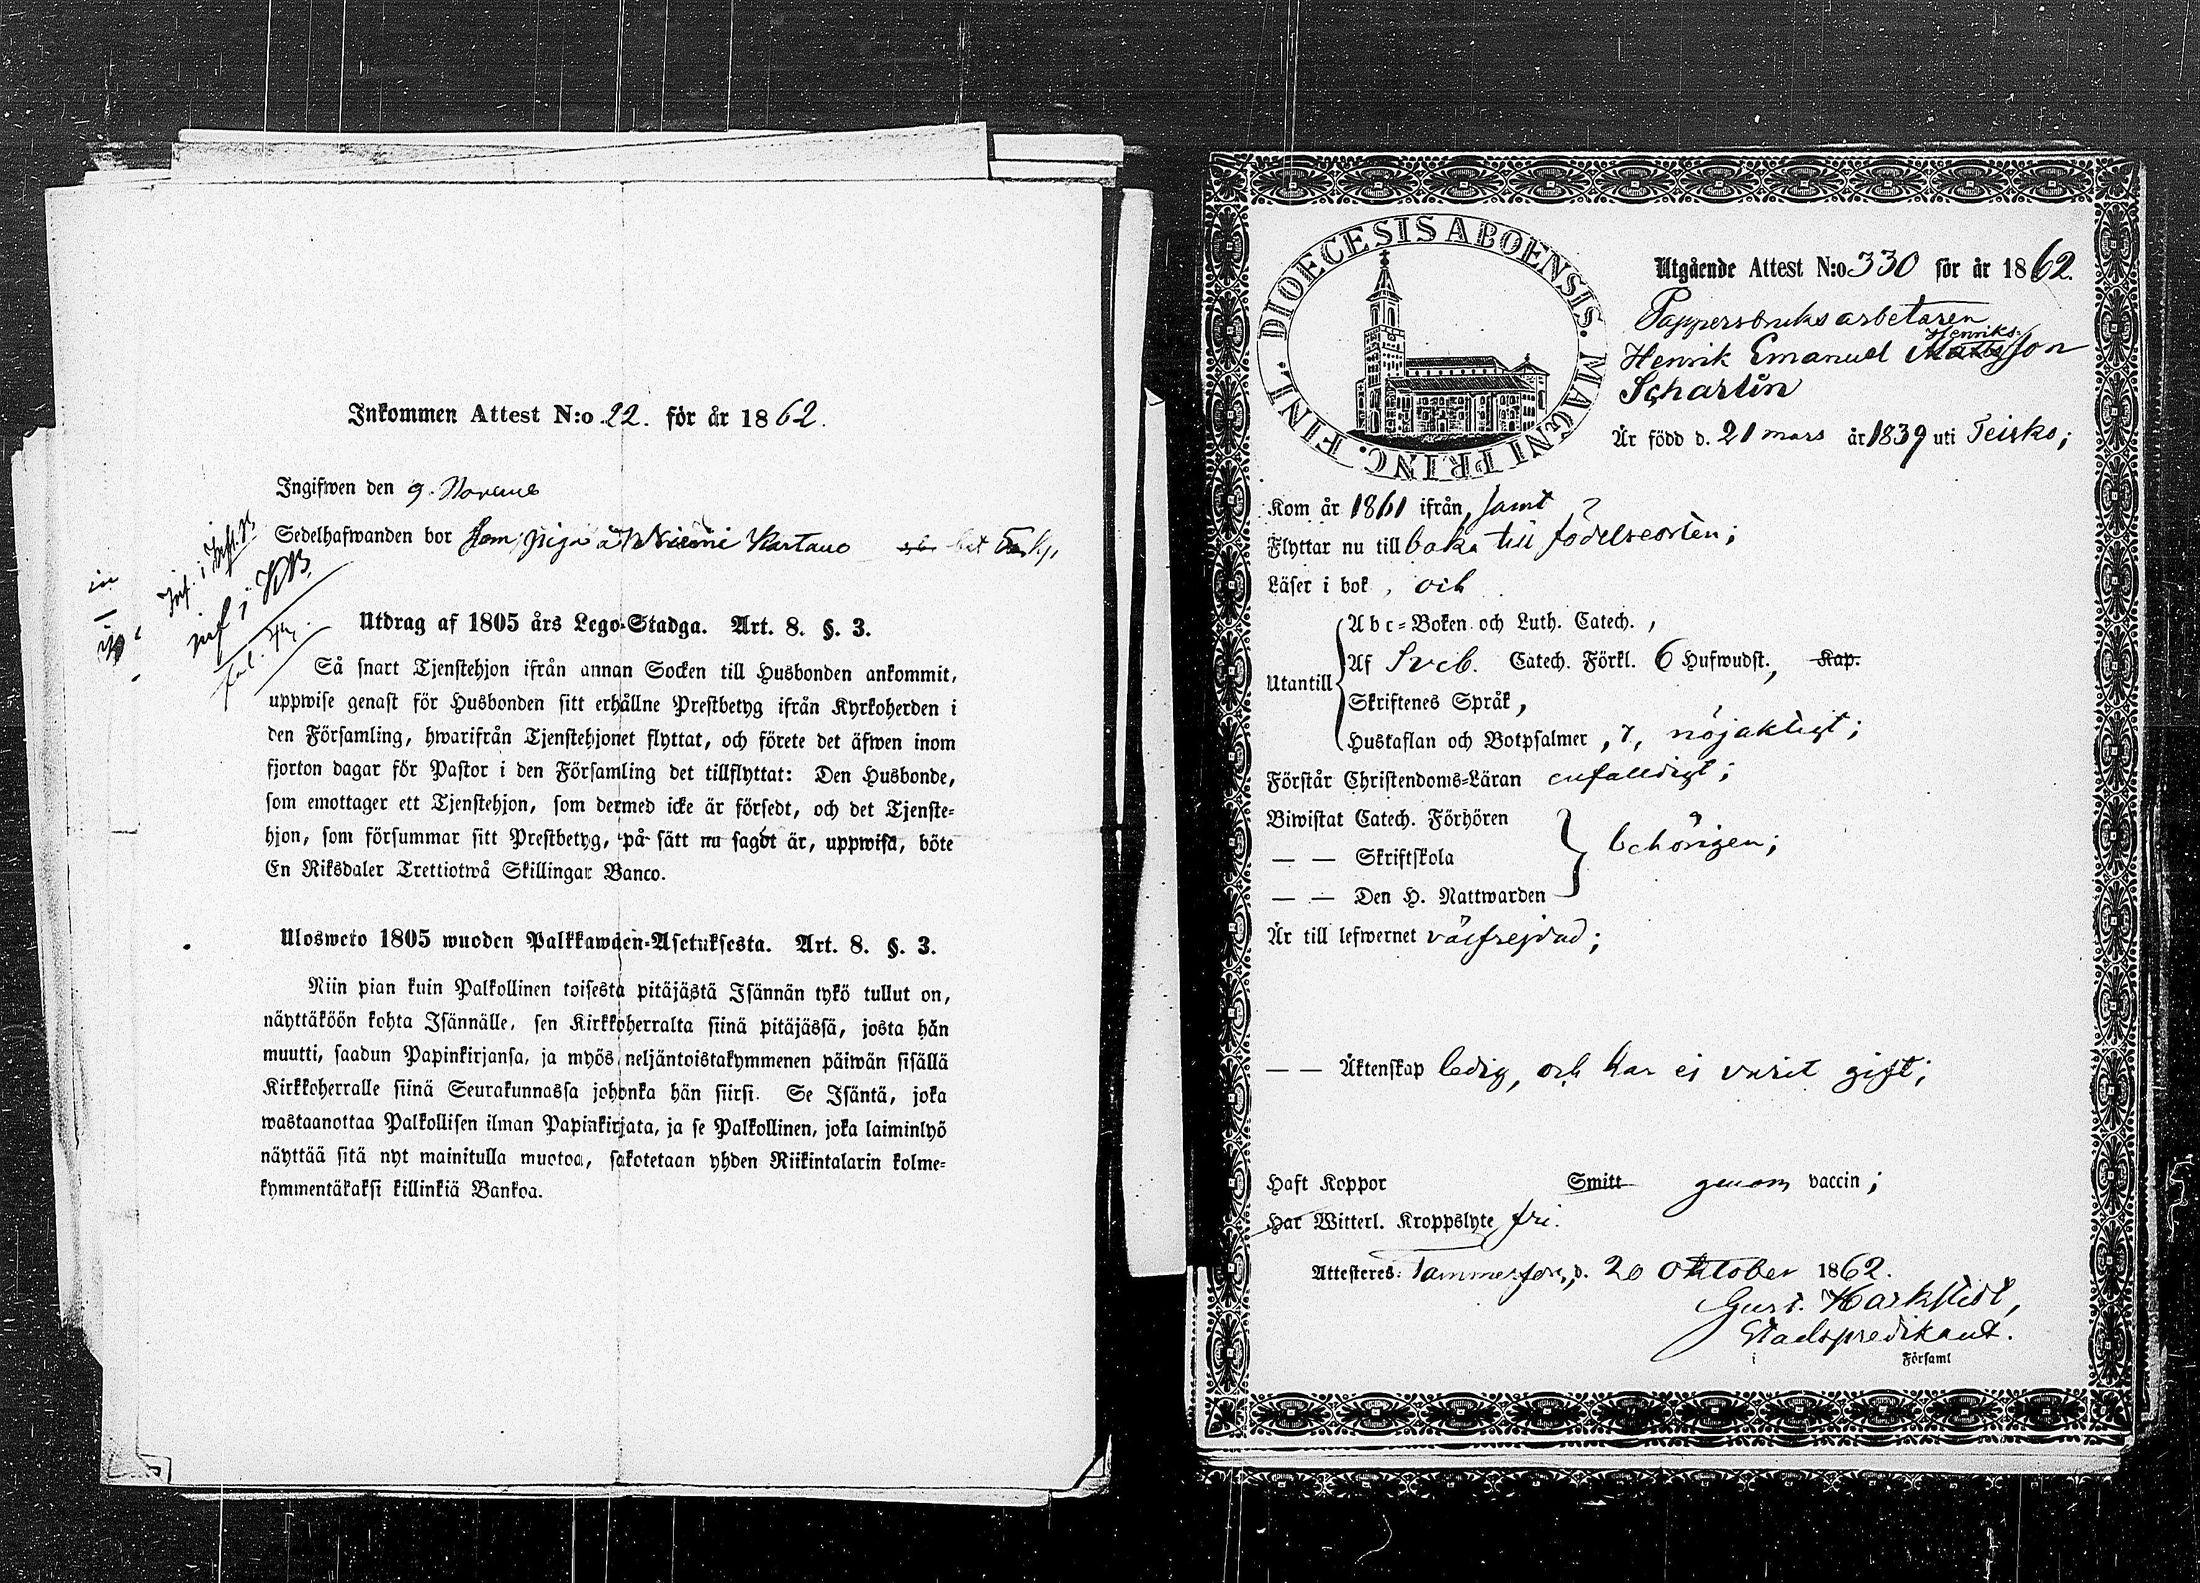 Inkommen Attest N:o 22. för år 1862.
Ingifwen den 9. Novemb
Sedelhafwanden bor som piga å Niemi Kartano
Inf. i Infl. B.
inf i KB
Utdrag af 1805 års Lego-Stadga. Art. 8. §. 3.
Så snart Tjenstehjon ifrån annan Socken till Husbonden ankommit,
uppwise genast för Husbonden sitt erhållne Prestbetyg ifrån Kyrkoherden i
den Församling, hwarifrån Tjenstehjonet flyttat, och förete det äfwen inom
fjorton dagar för Pastor i den Församling det tillflyttat: Den Husbonde,
som emottager ett Tjenstehjon, som dermed icke är försedt, och det Tjenste-
hjon, som försummar sitt Prestbetyg, på sätt nu sagdt är, uppwisa, böte
En Riksdaler Trettiotwå Skillingar Banco.
Ulosweto 1805 wuoden Palkkawäen-Asetuksesta. Art. 8. §. 3.
Niin pian kuin Palkollinen toisesta pitäjästä Isännän tykö tullut on,
näyttäköön kohta Isännälle, sen Kirkkoherralta siinä pitäjässä, josta hän
muutti, saadun Papinkirjansa, ja myös neljäntoistakymmenen päiwän sisällä
Kirkkoherralle siinä Seurakunnassa johonka hän siirsi. Se Isäntä, joka
wastaanottaa Palkollisen ilman Papinkirjata, ja se Palkollinen, joka laiminlyö
näyttää sitä nyt mainitulla muotoa, sakotetaan yhden Riikintalarin kolme-
kymmentäkaksi killinkiä Bankoa.
FINL. DIOECESIS ABOENSIS. MAGNI PRINC.
Utgående Attest N:o 330 för år 1862.
Pappersbruks arbetaren
Henriks-
Henrik Emanuel Mattsson
Schartin
Är född d. 21 mars år 1839 uti Teisko;
Kom år 1861 ifrån, samt
Flyttar nu till baka till födelseorten;
Läser i bok, och
Abc-Boken och Luth. Catech.,
Af Sveb. Catech. Förkl. 6 Hufwudst., Kap.
Utantill
Skriftenes Språk,
Hustaflan och Botpsalmer, 7, nöjaktigt;
Förstår Christendoms-Läran enfaldigt;
Biwistat Catech. Förhören
— — Skriftskola
behörigen;
— — Den H. Nattwarden
Är till lefwernet välfrejdad;
— — Äktenskap ledig, och har ej varit gift;
Haft Koppor Smitt genom vaccin;
Har Witterl. Kroppslyte fri.
Attesteres: Tammerfors, d. 20 Oktober 1862.
Gust. Harkstedt,
Stadspredikant.
i Församl